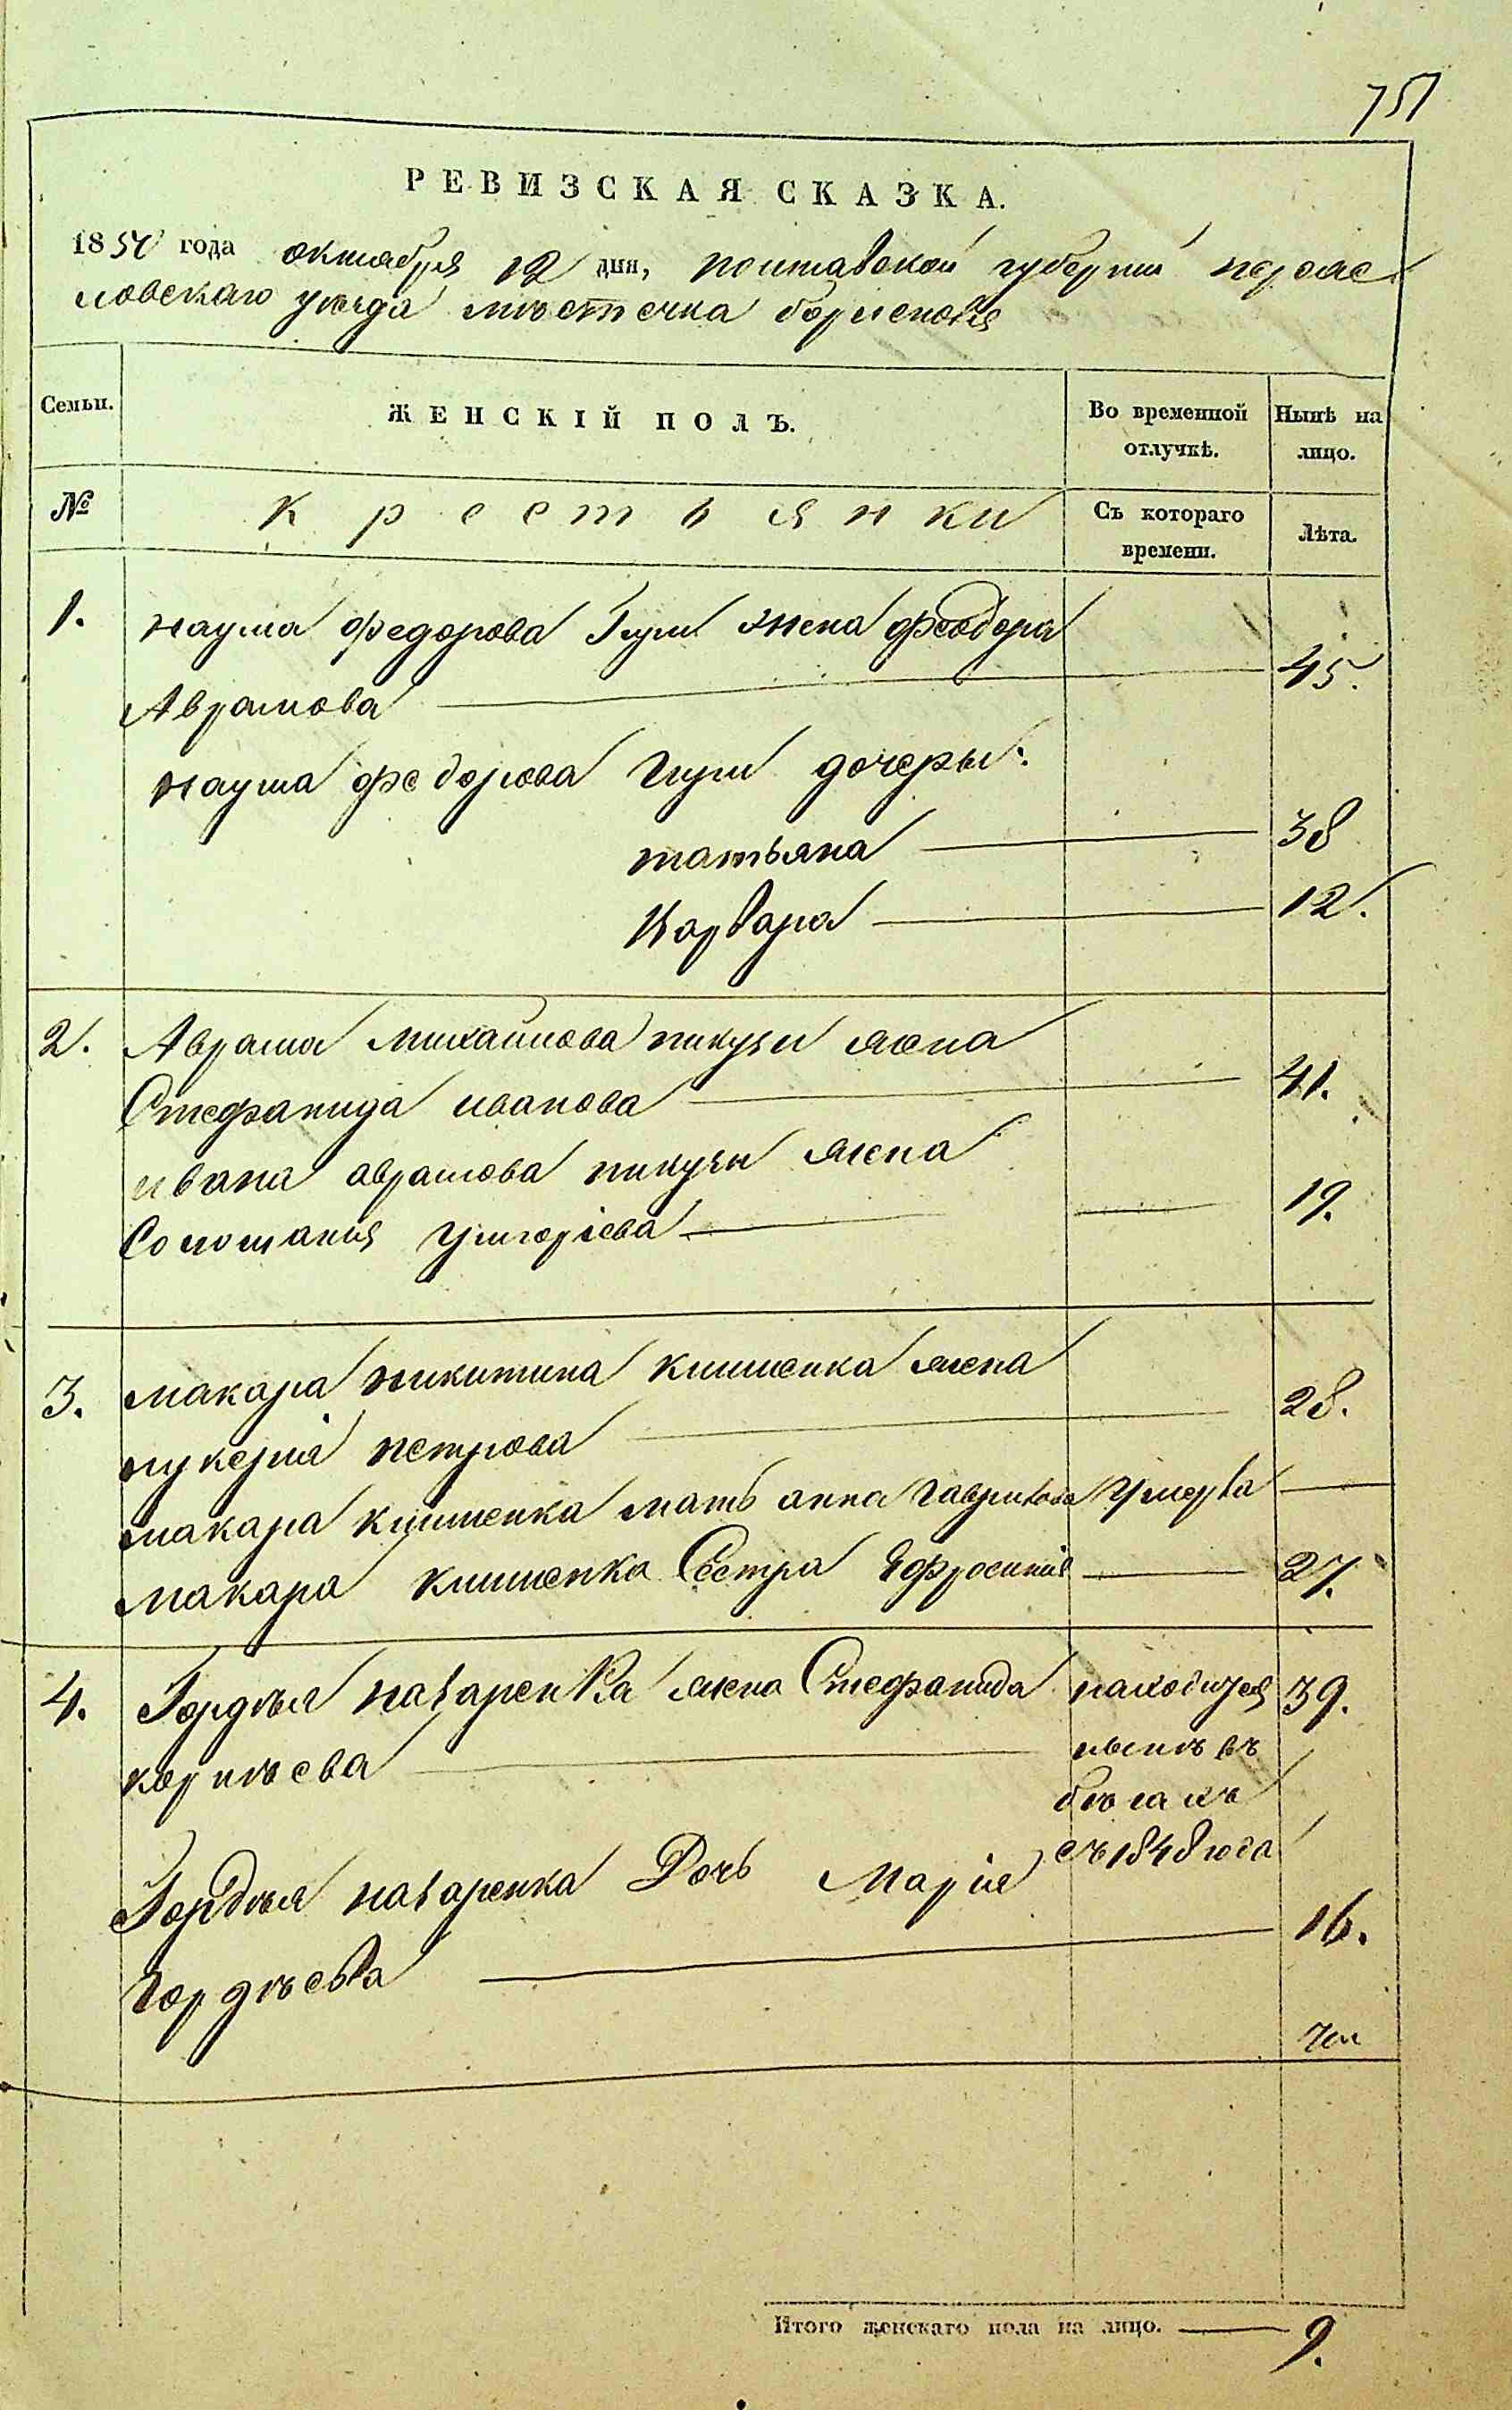 751
РЕВИЗСКАЯ СКАЗКА.
1850 года октября 12 дня, полтавской губерніи переяс
ловскаго уѣзда мѣстечка борисполя
Семьи.
ЖЕНСКІЙ ПОЛЪ.
Во временной отлучкѣ.
Нынѣ на лицо.
№
крестьянки
Съ котораго времени.
Лѣта.
1. наума федорова жена феодора
Аврамова 45.
наума федорова дочеры:
татьяна 38
Варвара 12.
2. Аврама михайлова пикузы жена
Стефанида иванова 41.
ивана аврамова пикузы жена
Соломания григоріева 19.
3. макара никитина клименка жена
лукерія петрова 28.
макара клименка мать анна гаврилова умерла
макара клименка Сестра Ефросинія 27.
4. Гордѣя назаренка жена Стефанида находится 39.
корнѣева нынѣ въ
бѣгахъ
съ 1848 года
Гордѣя назаренка Дочь Марія
гордѣева 16.
Итого женскаго пола на лицо. 9.